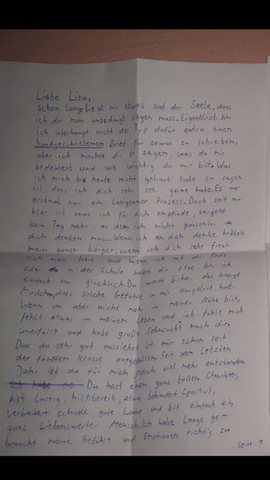 Liebe Lisa,
schon lange liegt mir etwas auf der Seele, dass
ich dir nun unbedingt sagen muss. Eigentlich bin
ich überhaupt nicht der Typ dafür extra einen
handgeschriebenen Brief für sowas zu schreiben,
aber ich möchte dir so zeigen, was du mir
bedeutest und wie wichtig du mir bist. Was
ich mich bis heute nicht getraut habe zu sagen
ist, dass ich dich sehr sehr gerne habe. Es war
erstmal nur ein langsamer Prozess. Doch seit mir
klar ist was ich für dich empfinde, vergeht
kein Tag mehr, an dem ich nicht pausenlos an
dich denken muss. Wenn ich an dich denke kribbelt
mein ganzer Körper, wenn ich dich sehe freut
sich mein und wenn ich am Ende
oder in der Schule neben dir sitze bin ich
einfach nur glücklich. Du warst bisher das einzige
Mädchen, dass solche Gefühle in mir ausgelöst hat.
Wenn du aber nicht mehr in meiner Nähe bist,
fehlt etwas in meinem Leben und ich fühle mich
unerfüllt und habe große Sehnsucht nach dir.
Das du sehr gut aussiehst ist mir schon seit
der fünften Klasse aufgefallen. Seit dem letzten
Jahr ist da für mich noch viel mehr entstanden.
Du hast einen ganz tollen Charakter,
bist lustig, hilfsbereit, sportlich,
verbreitest schnell gute Laune und bist einfach ein
ganz liebenswerter Mensch. Ich habe lange ge-
braucht meine Gefühle und Emotionen richtig zu
Seite 1